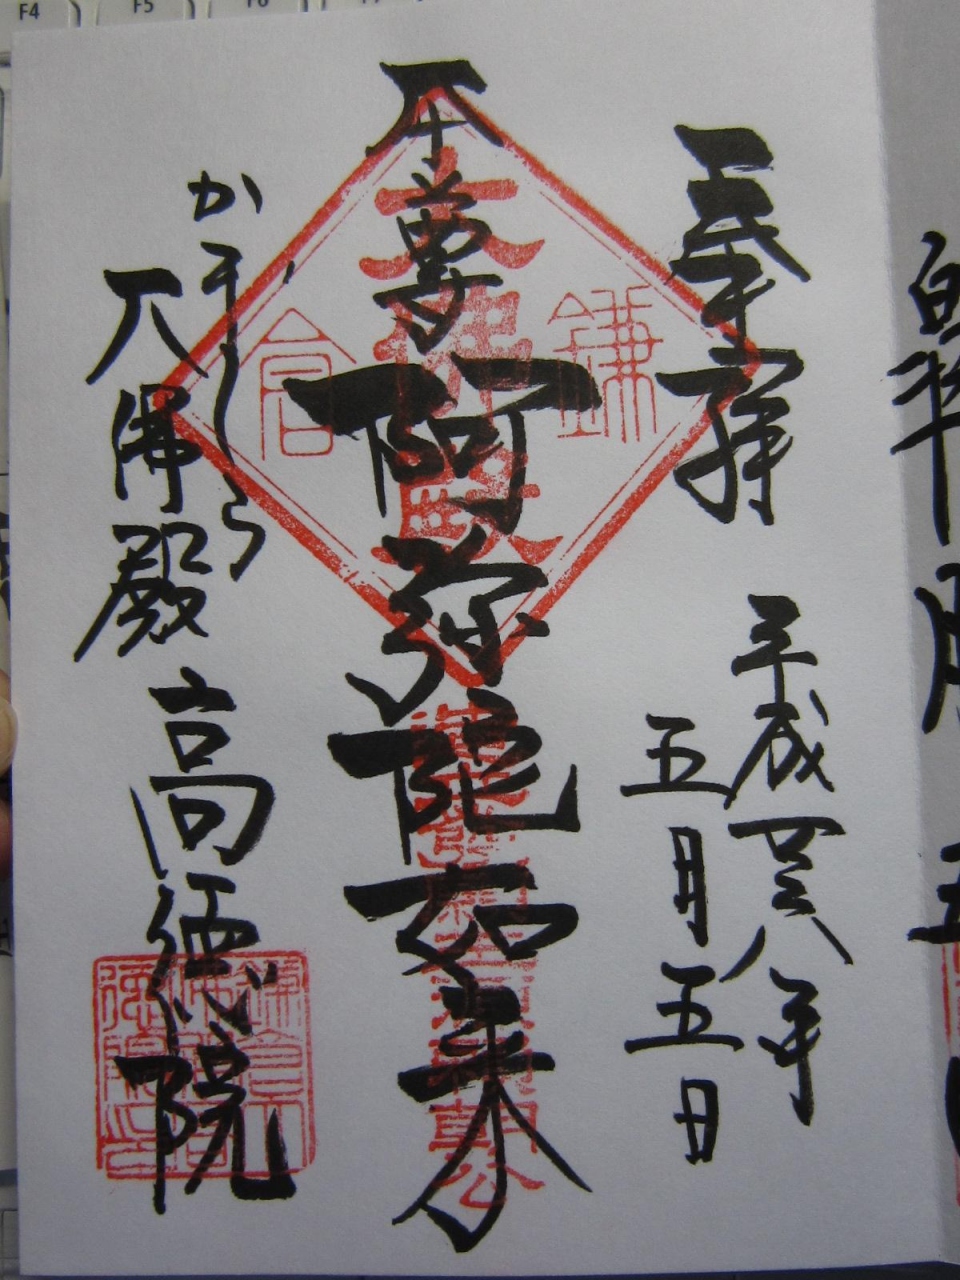 F4 F5 F6
奉拝
平成廿八年
五月五日
本尊
阿弥陀如来
かまくら
大佛殿高徳院
鎌倉
大佛殿